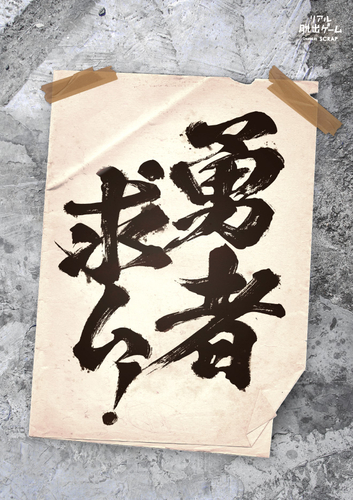 勇者
求ム!
リアル
脱出ゲーム
SCRAP